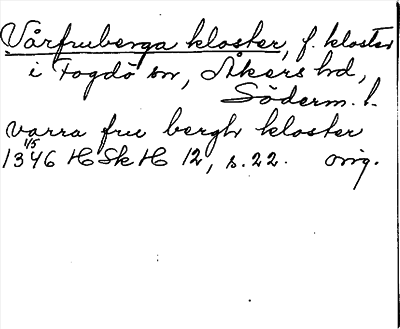 Vårfruberga kloster, f. kloster
i Fogdö sn, Åkers hd,
Söderm. l.
varra fru bergh kloster
1346 1/5 HSkH 12, s. 22. orig.